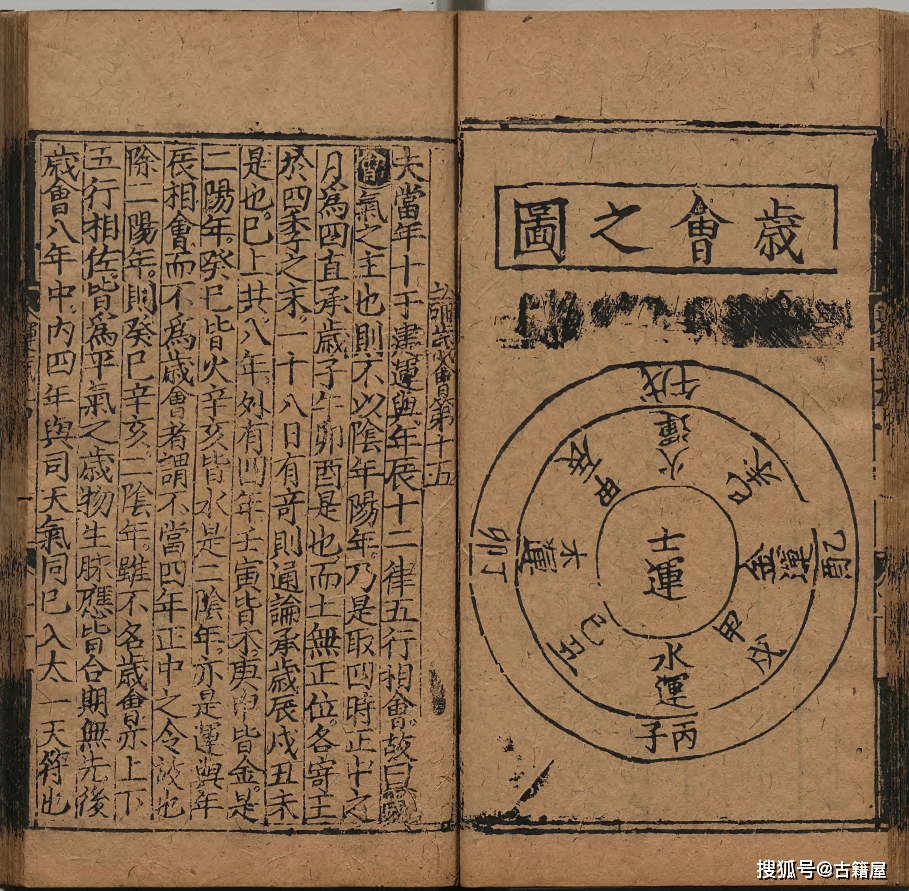 歳會之圖
戊午
火運
己未
乙酉
金運
甲戌
丙子
水運
己丑
丁卯
木運
甲辰
土運
論歲會第十五
夫當年十干建運與年辰十二律五行相會。故曰歲
會氣之主也則不以陰年陽年。乃是取四時正中之
月爲四直承歲子午卯酉是也而土無正位。各寄王
於四季之末。一十八日有奇則通論承歲辰戌丑未
是也。已上共八年。外有四年。壬寅皆木。庚申皆金。是
二陽年。癸巳皆火辛亥皆水是二陰年。亦是運與年
辰相會而不爲歲會者謂不當四年正中之令故也
除二陽年。則癸巳辛亥二陰年。雖不名歲會亦上下
五行相佐。皆爲平氣之歲物生脉應皆合期無先後
歲會八年中。内四年與司天氣同已入太一天符也
搜狐号@古籍屋